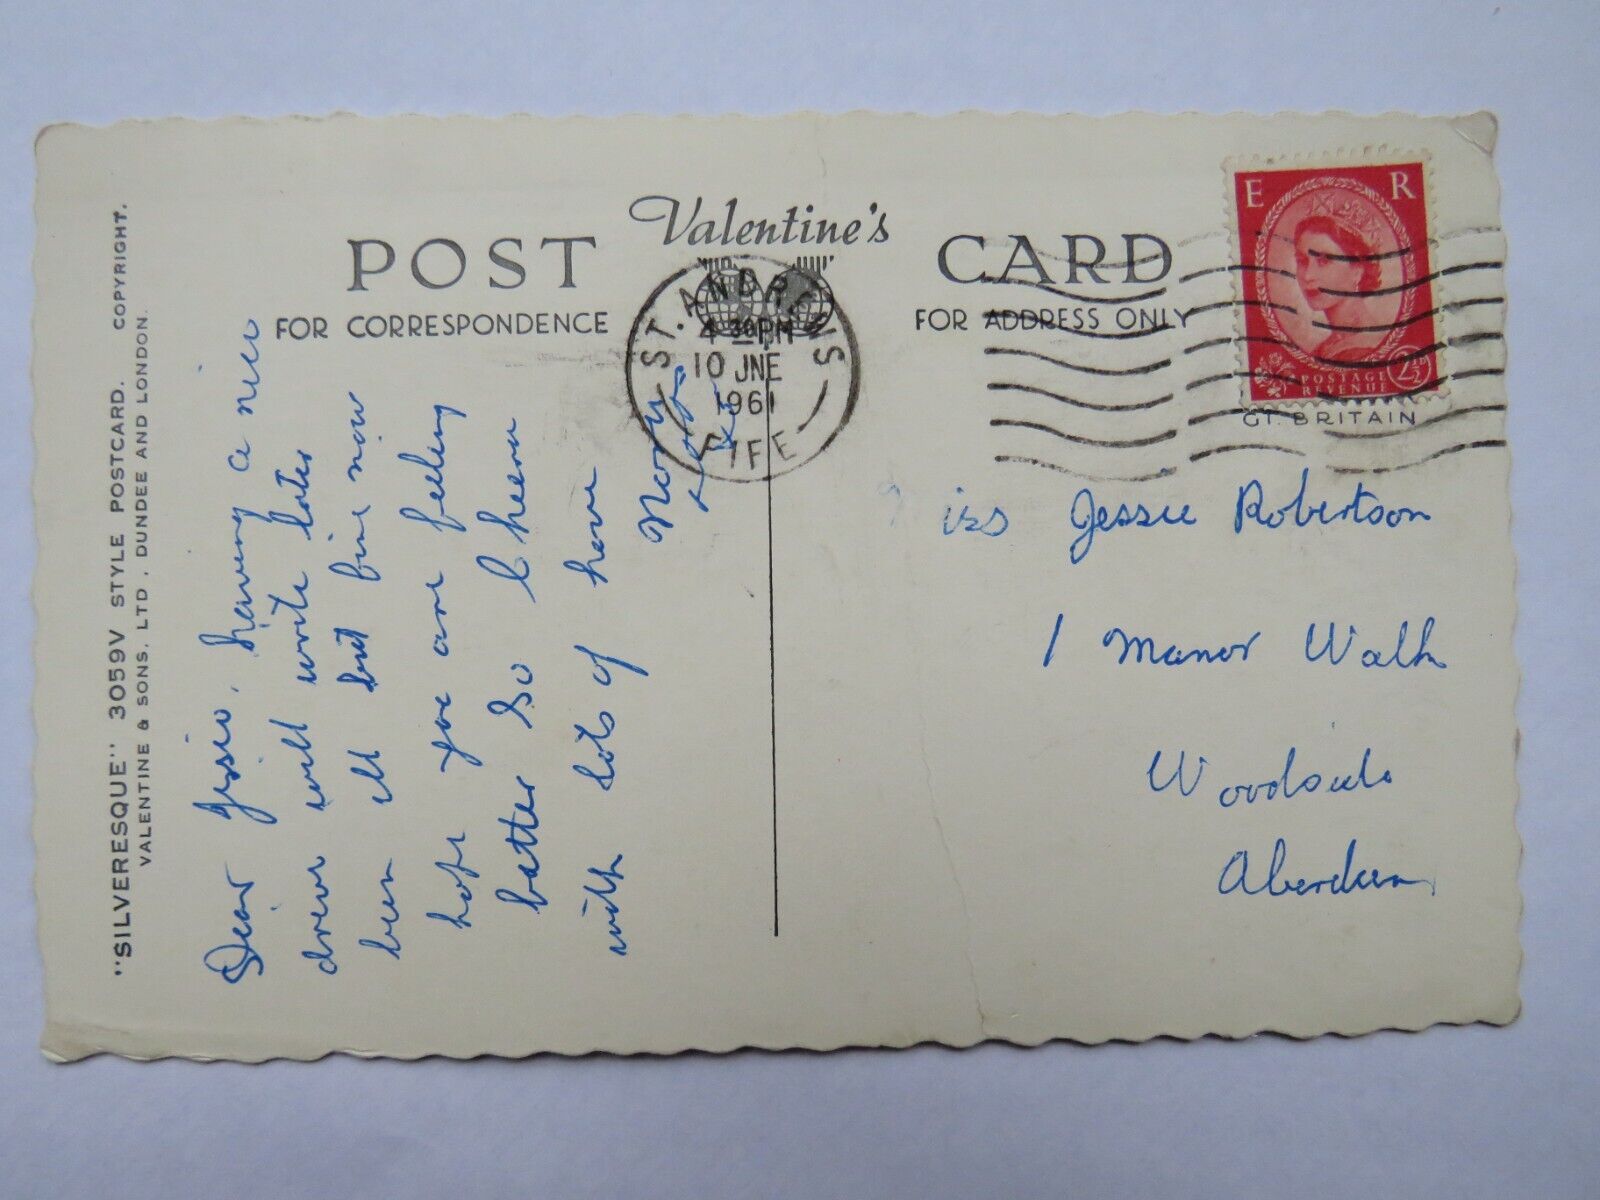 "SILVERESQUE" 3059V STYLE POSTCARD. COPYRIGHT.
VALENTINE & SONS, LTD, DUNDEE AND LONDON.
Valentine's
POST CARD
FOR CORRESPONDENCE
FOR ADDRESS ONLY
ST. ANDREWS
4 30PM
10 JNE
1961
FIFE
E R
POSTAGE
REVENUE
2½D
GT. BRITAIN
Dear Jessie. having a nice
will write later
been but fine now
hope you are feeling
better So Cheerio
with lots of love
iss Jessie Robertson
1 Manor Walk
Woodside
Aberdeen